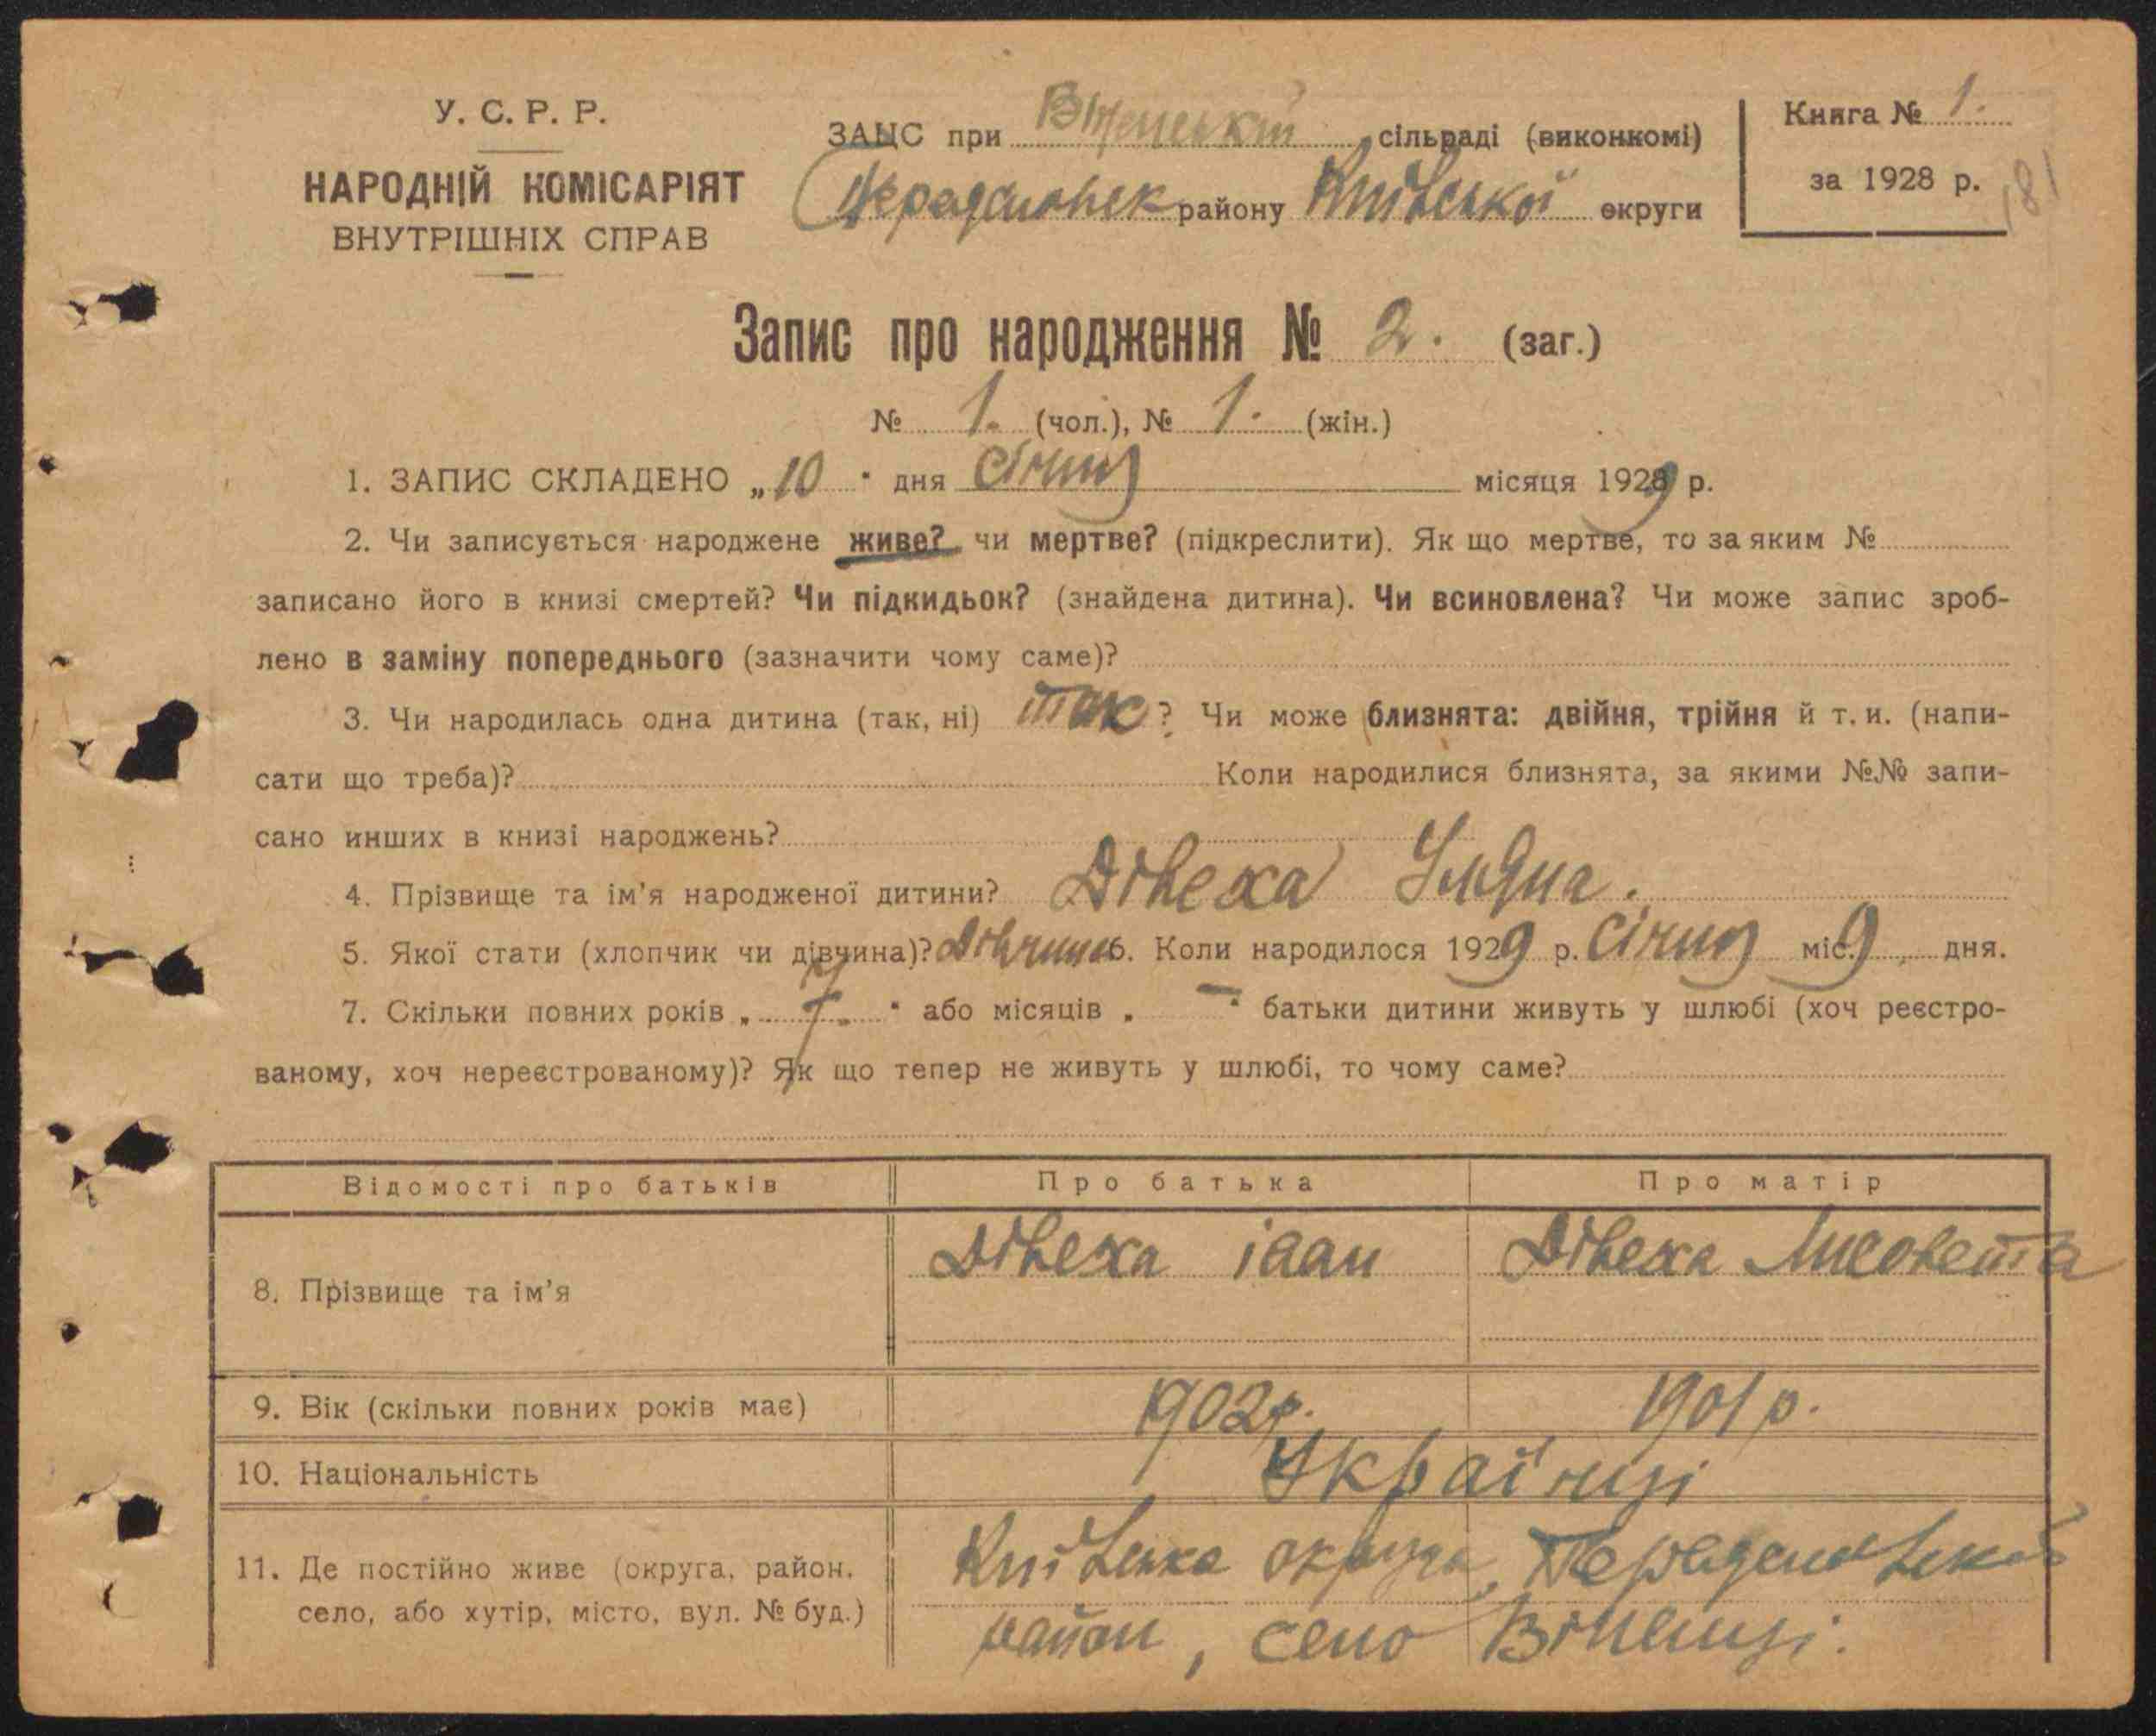 У. С. Р. Р.
НАРОДНІЙ КОМІСАРІЯТ
ВНУТРІШНІХ СПРАВ
ЗАЦС при сільраді (виконкомі)
району Київської округи
Книга № 1.
за 1928 р.
181
Запис про народження № 2. (заг.)
№ 1. (чол.), № 1. (жін.)
1. ЗАПИС СКЛАДЕНО „10" дня Січня місяця 1929 р.
2. Чи записується народжене живе? чи мертве? (підкреслити). Як що мертве, то за яким №
записано його в книзі смертей? Чи підкидьок? (знайдена дитина). Чи всиновлена? Чи може запис зроб-
лено в заміну попереднього (зазначити чому саме)?
3. Чи народилась одна дитина (так, ні) так? Чи може близнята: двійня, трійня й т. и. (напи-
сати що треба)? Коли народилися близнята, за якими №№ запи-
сано инших в книзі народжень?
4. Прізвище та ім'я народженої дитини? Дівеха Уляна.
5. Якої стати (хлопчик чи дівчина)? Дівчина 6. Коли народилося 1929 р. Січня міс. 9 дня.
7. Скільки повних років „ 7. " або місяців „ — " батьки дитини живуть у шлюбі (хоч реєстро-
ваному, хоч нереєстрованому)? Як що тепер не живуть у шлюбі, то чому саме?
Відомості про батьків Про батька Про матір
8. Прізвище та ім'я Дівеха іван Дівеха Лисовета
9. Вік (скільки повних років має) 1902р. 1901р.
10. Національність Українці
11. Де постійно живе (округа, район, Київська округа,
село, або хутір, місто, вул. № буд.) район, село Віненці.